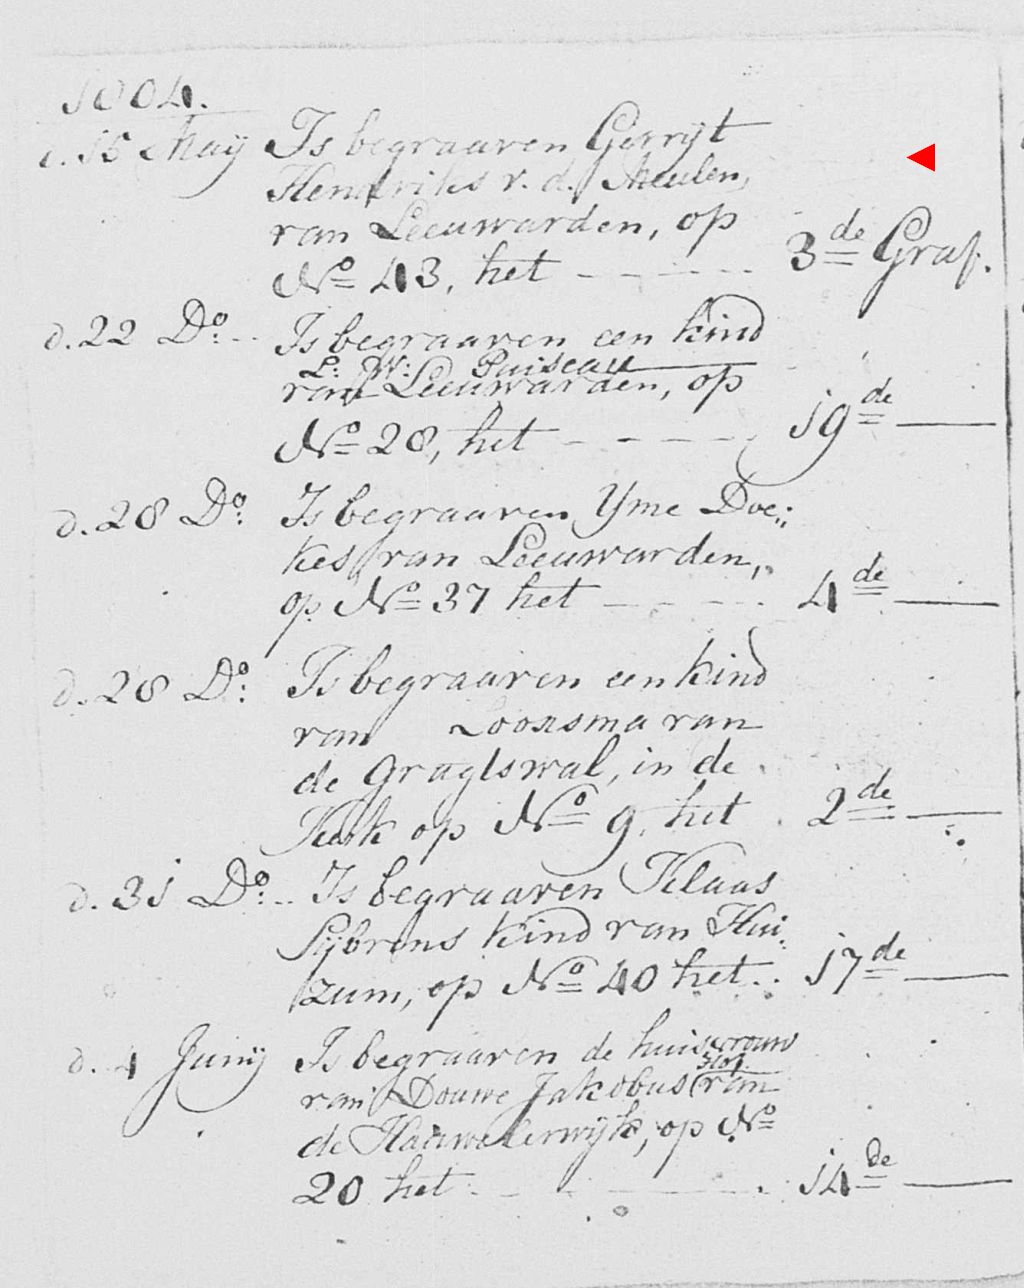 1804.
d. 15 Maij Is begraaven Gerrijt
Hendriks v. d. Meulen,
van Leeuwarden, op
No 43, het 3de Graf.
d. 22 Do. Is begraaven een kind
L: W: Puiseau
van Leeuwarden, op
No 28, het 19de
d. 28 Do: Is begraaven Yme Doe:
kes van Leeuwarden,
op No 37 het 4de
d. 28 Do: Is begraaven een kind
van Loonsma van
de Gragtswal, in de
Kerk op No 9, het 2de
d. 31 Do: Is begraaven Klaas
Sijbrens kind van Hui:
zum, op No 40 het 17de
d. 4 Junij Is begraaven de huisvrouw
van Douwe Jakobus van
de op No
20 het 14de